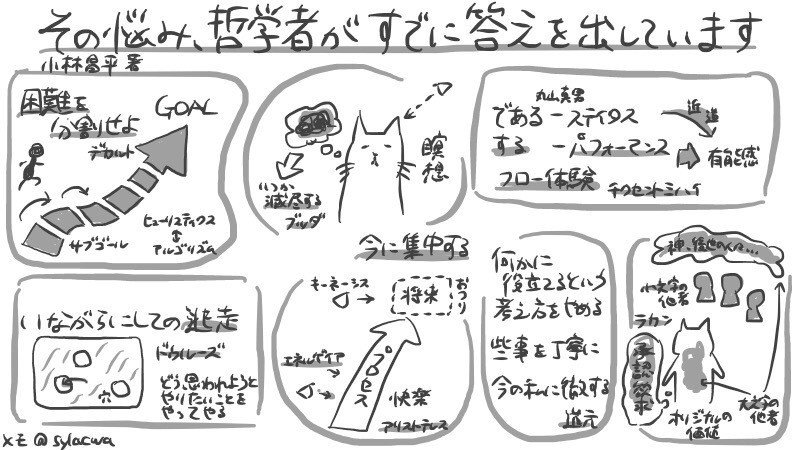 その悩み、哲学者がすでに答えを出しています
小林昌平著
困難を
分割せよ
デカルト
GOAL
サブゴール
ヒューリスティクス
アルゴリズム
瞑想
いつか
減尽する
ブッダ
今に集中する
丸山真男
であるーステイタス
するーパフォーマンス
近道
有能感
フロー体験
チクセントミハイ
いながらにしての逃走
ドゥルーズ
どう思われようと
やりたいことを
やってやる
穴
キーネーシス
将来
おつり
エネルゲイア
プロセス
快楽
アリストテレス
何かに
役立てるという
考え方をやめる
些事を丁寧に
今の私に徹する
道元
神、後世の人々…
小文字の
他者
ラカン
承認欲求
オリジナルの
価値
大文字の
他者
メモ@sylacwa